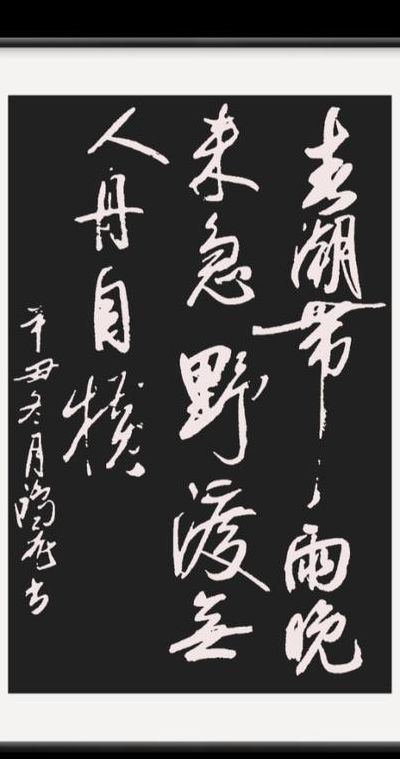 春潮带雨晚
来急野渡无
人舟自横
辛丑冬月书